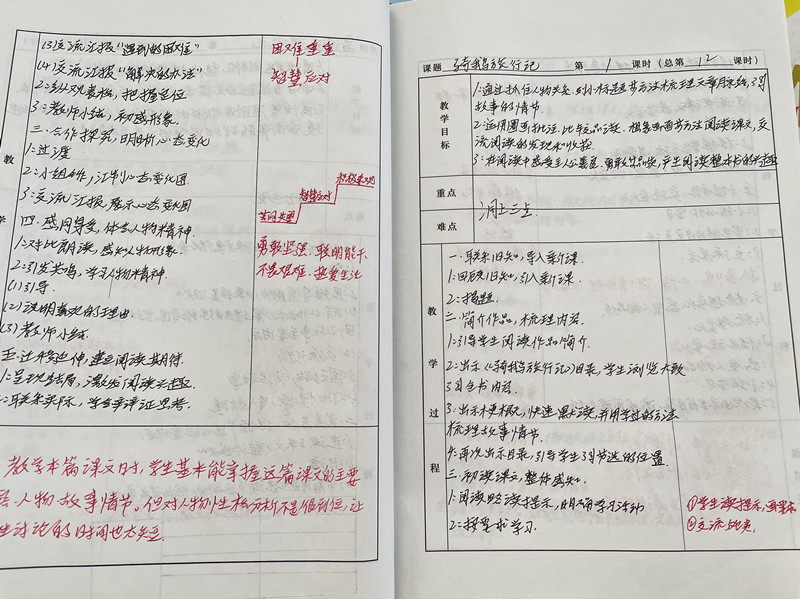 (3)交流汇报“遇到的困难”
(4)交流汇报“解决的办法”
困难重重
智慧应对
3:教师小结,初感形象
三、合作探究,明晰心态变化
1:过渡
2:小组合作,汇制心态变化图
3:交流汇报,展示心态变化图
智慧应对
四、感同身受,体会人物精神
1:对比朗读,感知人物形象
2:引发关情,学习人物精神
(1)引导
(2)说明喜欢的理由
(3)教师小结
勇敢坚强 聪明能干
不畏艰难 热爱生活
教
学
五:过片延伸,建立阅读期待
1:呈现结局,激发阅读兴趣
2:联系实际,学会辩证思考.
教学本篇课文时,学生基本能掌握这篇课文的主要
人物故事情节。但对人物性格分析不是很到位,让
生讨论的时间也太短
课题 骑鹅旅行记 第 1 课时(总第 12 课时)
教学目标
故事的情节.
2:运用圈画批注.比较品读.想象画面等方法阅读课文,交
流阅读的发现和收获.
3:在阅读中感受主人公善良、勇敢的品质,产生阅读整本书的兴趣
重点
难点
:同上三点
教学过程
一、联系旧知,导入新课
1:回顾旧知,引入新课
2:揭题
二:简介作品,梳理内容
1:引导学生阅读作品简介
2:出示《骑鹅旅行记》目录,学生浏览大致
了解全书内容
3:出示梗概,快速默读,并用学过的方法
梳理故事情节
4:再次出示目录,引导学生了解节选的位置
三:初读课文,整体感知
1:阅读略读提示,明确学习活动
2:按要求学习.
①学生读提示,画要求
②交流